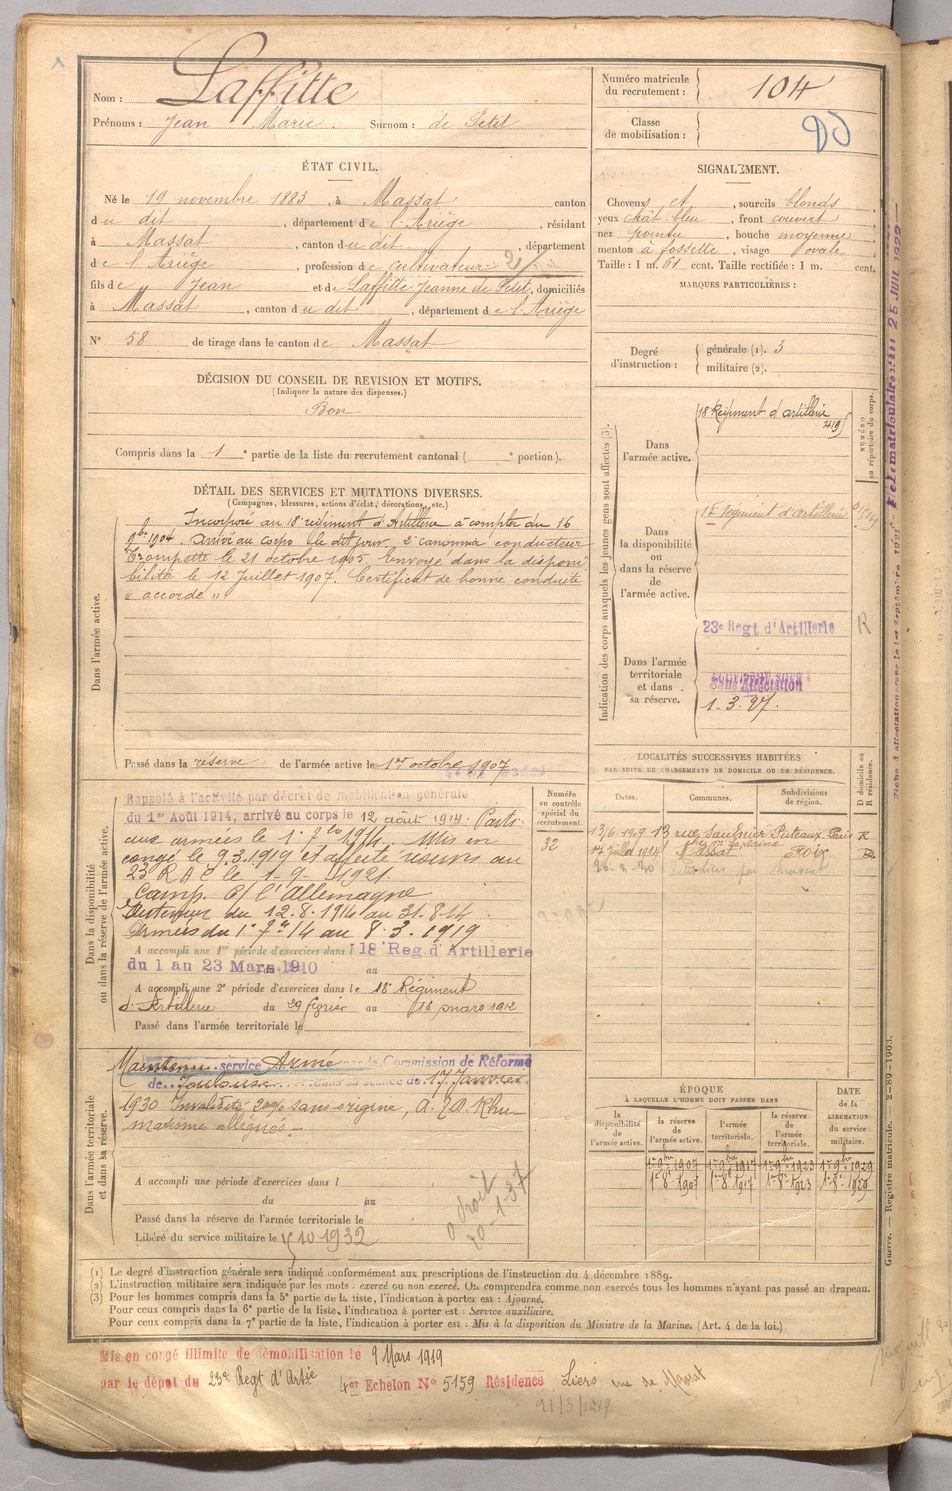 Nom : Laffitte
Prénoms : Jean Marie. Surnom : de Petit
Numéro matricule du recrutement : 104
Classe de mobilisation :
ÉTAT CIVIL.
Né le 19 novembre 1883, à Massat canton
du dit, département de l'Ariège, résidant
à Massat, canton du dit, département
de l'Ariège, profession de cultivateur
fils de Jean et de Laffitte Jeanne de Petit, domiciliés
à Massat, canton du dit, département de l'Ariège
N° 58 de tirage dans le canton de Massat
DÉCISION DU CONSEIL DE REVISION ET MOTIFS.
(Indiquer la nature des dispenses.)
Bon
Compris dans la 1e partie de la liste du recrutement cantonal ( e portion).
SIGNALEMENT.
Cheveux et, sourcils blonds,
yeux chât. bleu, front couvert
nez pointu, bouche moyenne
menton à fossette, visage ovale
Taille : 1 m. 61 cent. Taille rectifiée : 1 m. cent.
MARQUES PARTICULIÈRES :
Degré d'instruction : générale (1). 3
militaire (2).
DÉTAIL DES SERVICES ET MUTATIONS DIVERSES.
(Campagnes, blessures, actions d'éclat, décorations, etc.)
Dans l'armée active.
Incorporé au 18e régiment d'Artillerie à compter du 16
9bre 1904. Arrivé au corps le dit jour, 2e canonnier conducteur
Trompette le 21 octobre 1905. Envoyé dans la disponi
bilité le 12 Juillet 1907. Certificat de bonne conduite
" accordé "
Passé dans la réserve de l'armée active le 1er octobre 1907
Indication des corps auxquels les jeunes gens sont affectés (3).
NUMÉRO au répertoire du corps.
Dans l'armée active.
18 Régiment d'artillerie
419
Dans la disponibilité ou dans la réserve de l'armée active.
18 Régiment d'Artillerie
23e Regt d'Artillerie R
Dans l'armée territoriale et dans sa réserve.
Sans Affectation
1.3.27.
Dans la disponibilité ou dans la réserve de l'armée active.
Rappelé à l'activité par décret de mobilisation générale
du 1er Août 1914, arrivé au corps le 12 août 1914. Parti
aux armées le 1er 7bre 1914. Mis en
congé le 9.3.1919 et affecté réserve au
23 R A C le 1-9-1921.
Camp. c/ l'Allemagne
Intérieur du 12.8.1914 au 31.8.14
Armées du 1er 7bre 14 au 8.3.1919
A accompli une 1re période d'exercices dans l 18e Reg. d'Artillerie
du 1 au 23 Mars 1910 au
A accompli une 2e période d'exercices dans le 18e Régiment
d'Artillerie du 29 février au 16 mars 1912
Passé dans l'armée territoriale le
Numéro au contrôle spécial du recrutement.
32
LOCALITÉS SUCCESSIVES HABITÉES
PAR SUITE DE CHANGEMENTS DE DOMICILE OU DE RÉSIDENCE.
Dates. Communes. Subdivisions de région. D domicile ou R résidence.
13/6-1909 13 rue Saulnier Puteaux Paris R
14 Juillet 1914 Massat Foix D
Dans l'armée territoriale et dans sa réserve.
Maintenu service Armé Commission de Réforme
de Toulouse dans sa séance du 17 Janvier
1930 Invalidité 20% sans origine, A. T. D. Rhu-
matismes allégués.
A accompli une période d'exercices dans l
du au
Passé dans la réserve de l'armée territoriale le
Libéré du service militaire le 15 10 1932
ÉPOQUE
À LAQUELLE L'HOMME DOIT PASSER DANS
la disponibilité de l'armée active. la réserve de l'armée active. l'armée territoriale. la réserve de l'armée territoriale. DATE de la LIBERATION du service militaire.
1er 9bre 1907 1er 9bre 1917 1er 9bre 1923 1er 9bre 1929
1er 8bre 1907 1er 8bre 1917 1er 8bre 1923 1er 8bre 1929
(1) Le degré d'instruction générale sera indiqué conformément aux prescriptions de l'instruction du 4 décembre 1889.
(2) L'instruction militaire sera indiquée par les mots : exercé ou non exercé. On comprendra comme non exercés tous les hommes n'ayant pas passé au drapeau.
(3) Pour les hommes compris dans la 5e partie de la liste, l'indication à porter est : Ajourné.
Pour ceux compris dans la 6e partie de la liste, l'indication à porter est : Service auxiliaire.
Pour ceux compris dans la 7e partie de la liste, l'indication à porter est : Mis à la disposition du Ministre de la Marine. (Art. 4 de la loi.)
Guerre. — Registre matricule. 2-89-1903.
Mis en congé illimité de démobilisation le 9 Mars 1919
par le dépôt du 23e Regt d'Artie 4er Echelon N° 5159 Résidence Liers de Massat
21/3/1919